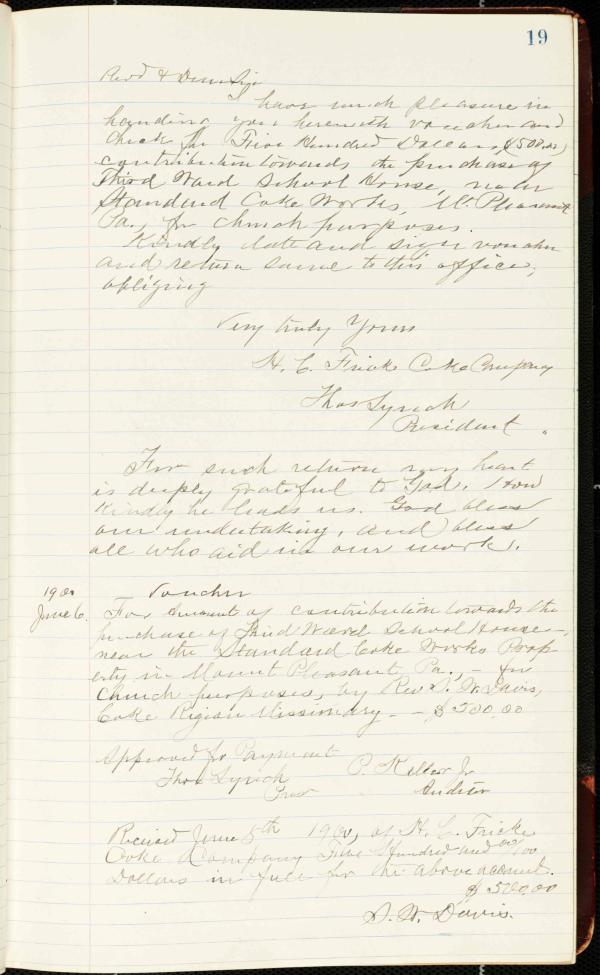 19
Revd & Dear Sir
I have much pleasure in
handing you herewith voucher and
check for Five Hundred Dollars, ($500.00)
contribution towards the purchase of
Third Ward School House, near
Standard Coke Works, Mt. Pleasant
Pa., for church purposes.
Kindly date and sign voucher
and return same to this office,
obliging
Very truly Yours
H. C. Fricke Coke Company
Thos Lynch
President.
For such return my heart
is deeply grateful to God. How
kindly he leads us. God bless
our undertaking, and bless
all who aid in our work.
1900 Voucher
June 6. For amount of contribution towards the
purchase of Third Ward School House,
near the Standard Coke Works Prop
erty in Mount Pleasant, Pa., - for
church purposes, by Rev S. W. Davis,
Coke Region Missionary - - $500.00
Approved for Payment
Thos Lynch P. Keller Jr
Pres Auditor
Received June 8th 1900, of H. C. Fricke
Coke Company Five Hundred and 00/100
Dollars in full for the above account.
$500.00
S. W. Davis.